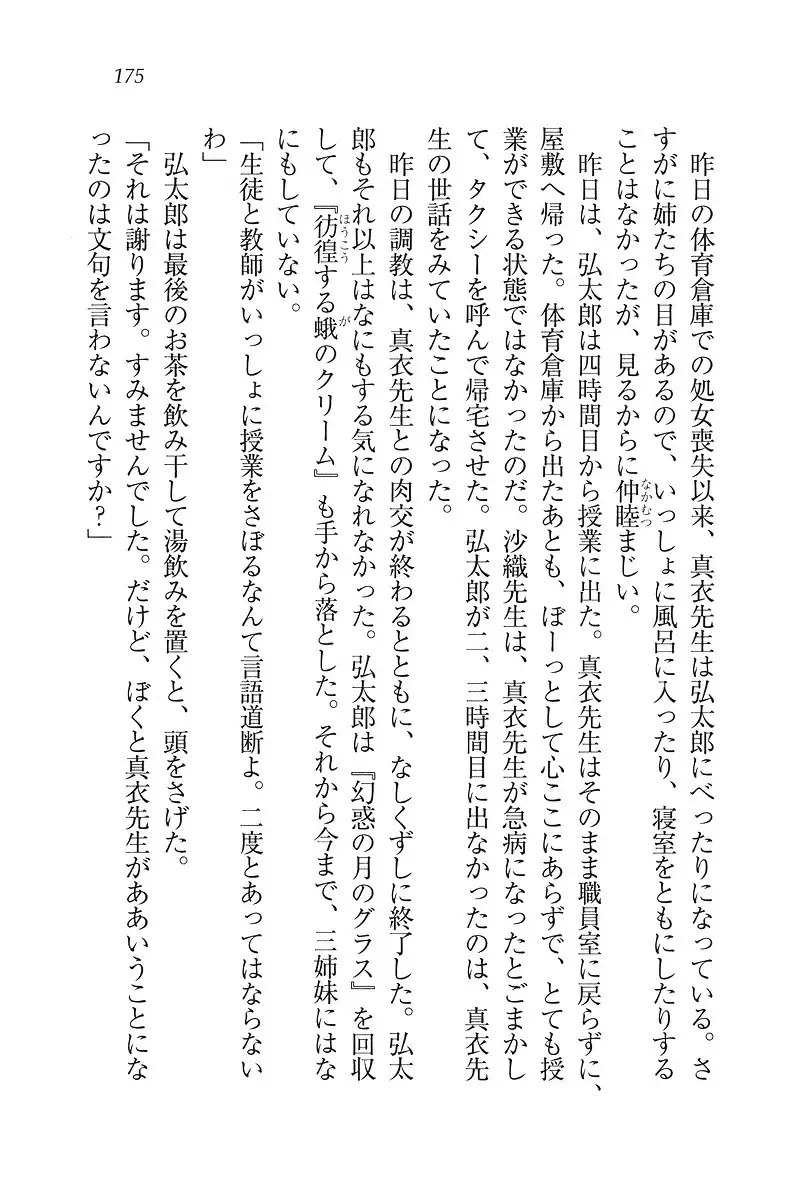 175
昨日の体育倉庫での処女喪失以来、真衣先生は弘太郎にべったりになっている。さ
すがに姉たちの目があるので、いっしょに風呂に入ったり、寝室をともにしたりする
ことはなかったが、見るからに仲睦まじい。
昨日は、弘太郎は四時間目から授業に出た。真衣先生はそのまま職員室に戻らずに、
屋敷へ帰った。体育倉庫から出たあとも、ぼーっとして心ここにあらずで、とても授
業ができる状態ではなかったのだ。沙織先生は、真衣先生が急病になったとごまかし
て、タクシーを呼んで帰宅させた。弘太郎が二、三時間目に出なかったのは、真衣先
生の世話をみていたことになった。
昨日の調教は、真衣先生との肉交が終わるとともに、なしくずしに終了した。弘太
郎もそれ以上はなにもする気になれなかった。弘太郎は『幻惑の月のグラス』を回収
して、『彷徨する蛾のクリーム』も手から落とした。それから今まで、三姉妹にはな
にもしていない。
「生徒と教師がいっしょに授業をさぼるなんて言語道断よ。二度とあってはならない
わ」
弘太郎は最後のお茶を飲み干して湯飲みを置くと、頭をさげた。
「それは謝ります。すみませんでした。だけど、ぼくと真衣先生がああいうことにな
ったのは文句を言わないんですか？」